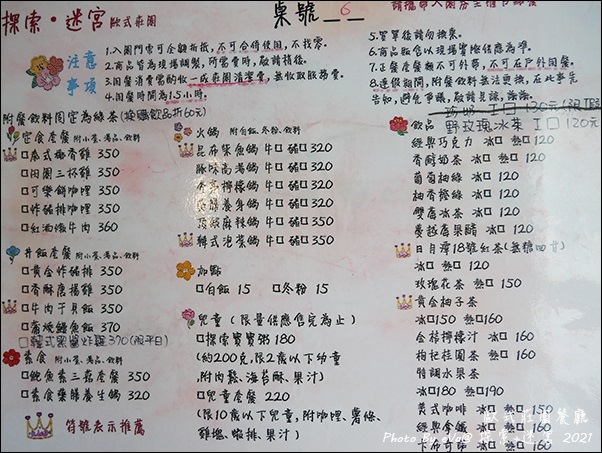 探索·迷宮 歐式莊園
桌號 6
注意事項
1.入園門票可全額折抵,不可合併使用,不找零。
2.商品皆為現場調製,所需費時,敬請稍後。
3.因餐消費需酌收一成莊園清潔費,無收取服務費。
4.用餐時間為1.5小時。
5.買單後請勿換桌。
6.商品販售以現場實際供應為準。
7.正餐產餐類不可外帶,不可在戶外用餐。
8.連假期間,附餐飲料無法更換,在此事先
告知,避免爭議,敬請見諒,謝謝。
附餐飲料固定為綠茶(換購飲品折60元)
定食套餐 附小菜、湯品、飲料
□ 350
□閑園三杯雞 350
□可樂餅咖哩 350
□炸豬排咖哩 350
□紅酒燉牛肉 360
丼飯套餐 附小菜、湯品、飲料
□黃金炸豬排 350
□香酥唐揚雞 350
□牛肉干貝飯 350
□蒲燒鰻魚飯 370
□韓式果醬炸雞 370(限平日)
素食 附小菜、湯品、飲料
□鮑魚素三菇套餐 350
□素食藥膳養生鍋 320
符號表示推薦
火鍋 附白飯、冬粉、飲料
昆布柴魚鍋 牛□ 豬□ 320
豚味高湯鍋 牛□ 豬□ 320
檸檬鍋 牛□ 豬□ 320
養身鍋 牛□ 豬□ 320
頂級麻辣鍋 牛□ 豬□ 350
韓式泡菜鍋 牛□ 豬□ 350
加點
□白飯 15 □冬粉 15
兒童(限量供應售完為止)
□探索寶寶粥 180
(約200克,限2歲以下幼童
,附肉鬆、海苔酥、果汁)
□兒童套餐 220
(限10歲以下兒童,附咖哩、薯條、
雞塊、蝦排、果汁)
飲品 野玫瑰冰茶 I□ 120元
經典巧克力 冰□ 熱□ 120
香醇奶茶 冰□ 熱□ 120
葡萄柚綠 冰□ 熱□ 120
柚香橙綠 冰□ 熱□ 120
雙蜜冰茶 冰□ 熱□ 120
蔓越莓果醋 冰□ 熱□ 120
日月潭18號紅茶(無糖回甘)
冰□ 熱□ 120
玫瑰花茶 冰□ 熱□ 150
黃金柚子茶
冰□150 熱□160
金桔檸檬汁 冰□ 熱□ 160
枸杞桂圓茶 冰□ 熱□ 160
特調水果茶
冰□180 熱□190
美式咖啡 冰□ 熱□ 150
經典拿鐵 冰□ 熱□ 160
卡布奇諾 冰□ 熱□ 160
歐式莊園餐廳
Photo By eVa@ 探索+迷宮 2021